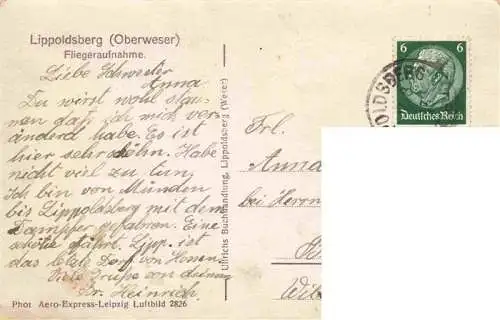 Lippoldsberg (Oberweser)
Fliegeraufnahme.
Liebe Schwester
Anna
Du wirst wohl stau-
nen daß ich mich ver-
änderd habe. Es ist
hier sehr schön. Habe
nicht viel zu tun,
Ich bin von Münden
bis Lippoldsberg mit dem
Dampfer gefahren. Eine
schöne Fahrt. Lipp. ist
das letzte Dorf von
Viele Grüße von deinem
Br. Heinrich.
Phot Aero-Express-Leipzig Luftbild 2826
Ullrichs Buchhandlung, Lippoldsberg (Weser)
6 6
Deutsches Reich
OLDSBERG
Frl.
Anna
bei Herrn